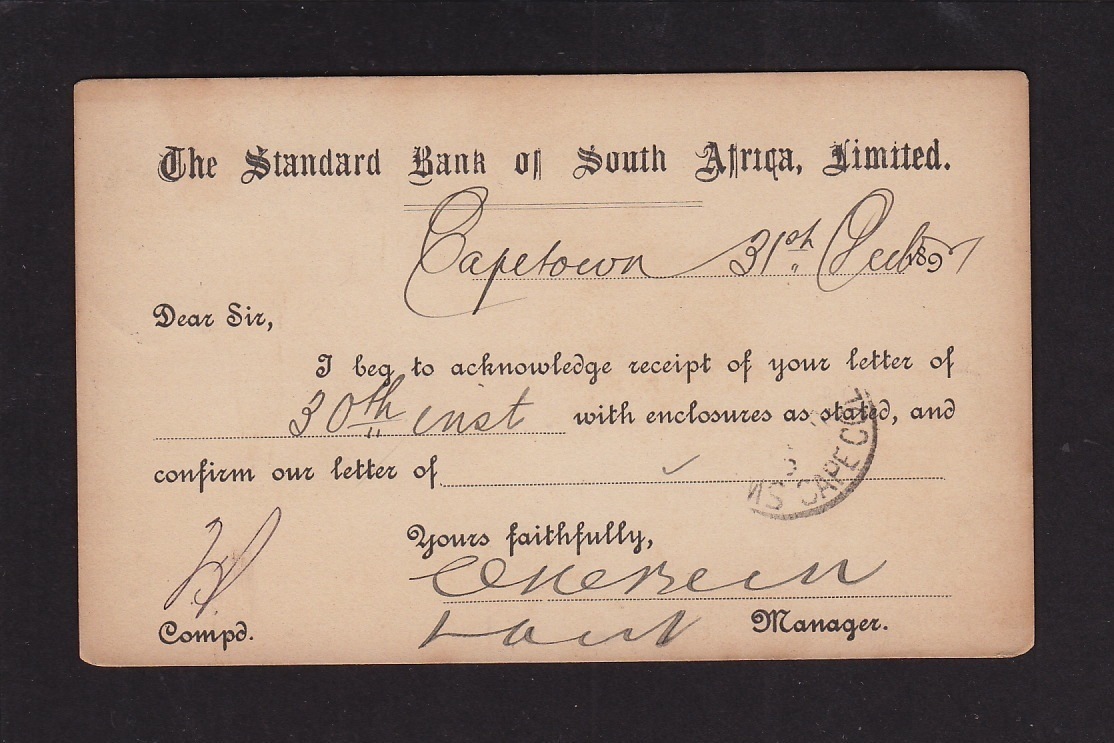 The Standard Bank of South Africa, Limited.
Capetown 31st Decb 1897
Dear Sir,
I beg to acknowledge receipt of your letter of
30th inst with enclosures as stated, and
confirm our letter of
CAPE COL
Yours faithfully,
Compd.
Manager.